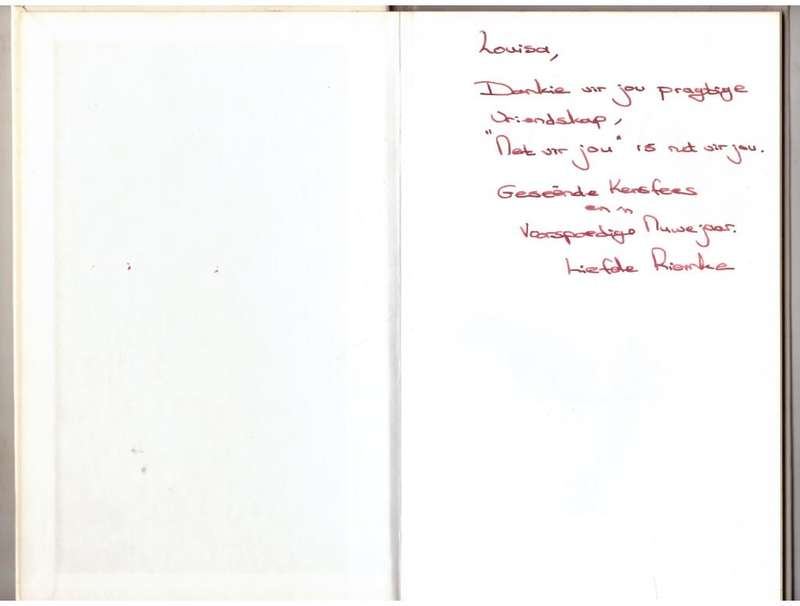 Louisa,
Dankie vir jou pragtige
vriendskap,
"Net vir jou" is net vir jou.
Geseënde Kersfees
en 'n
Voorspoedige Nuwejaar.
Liefde Riemke